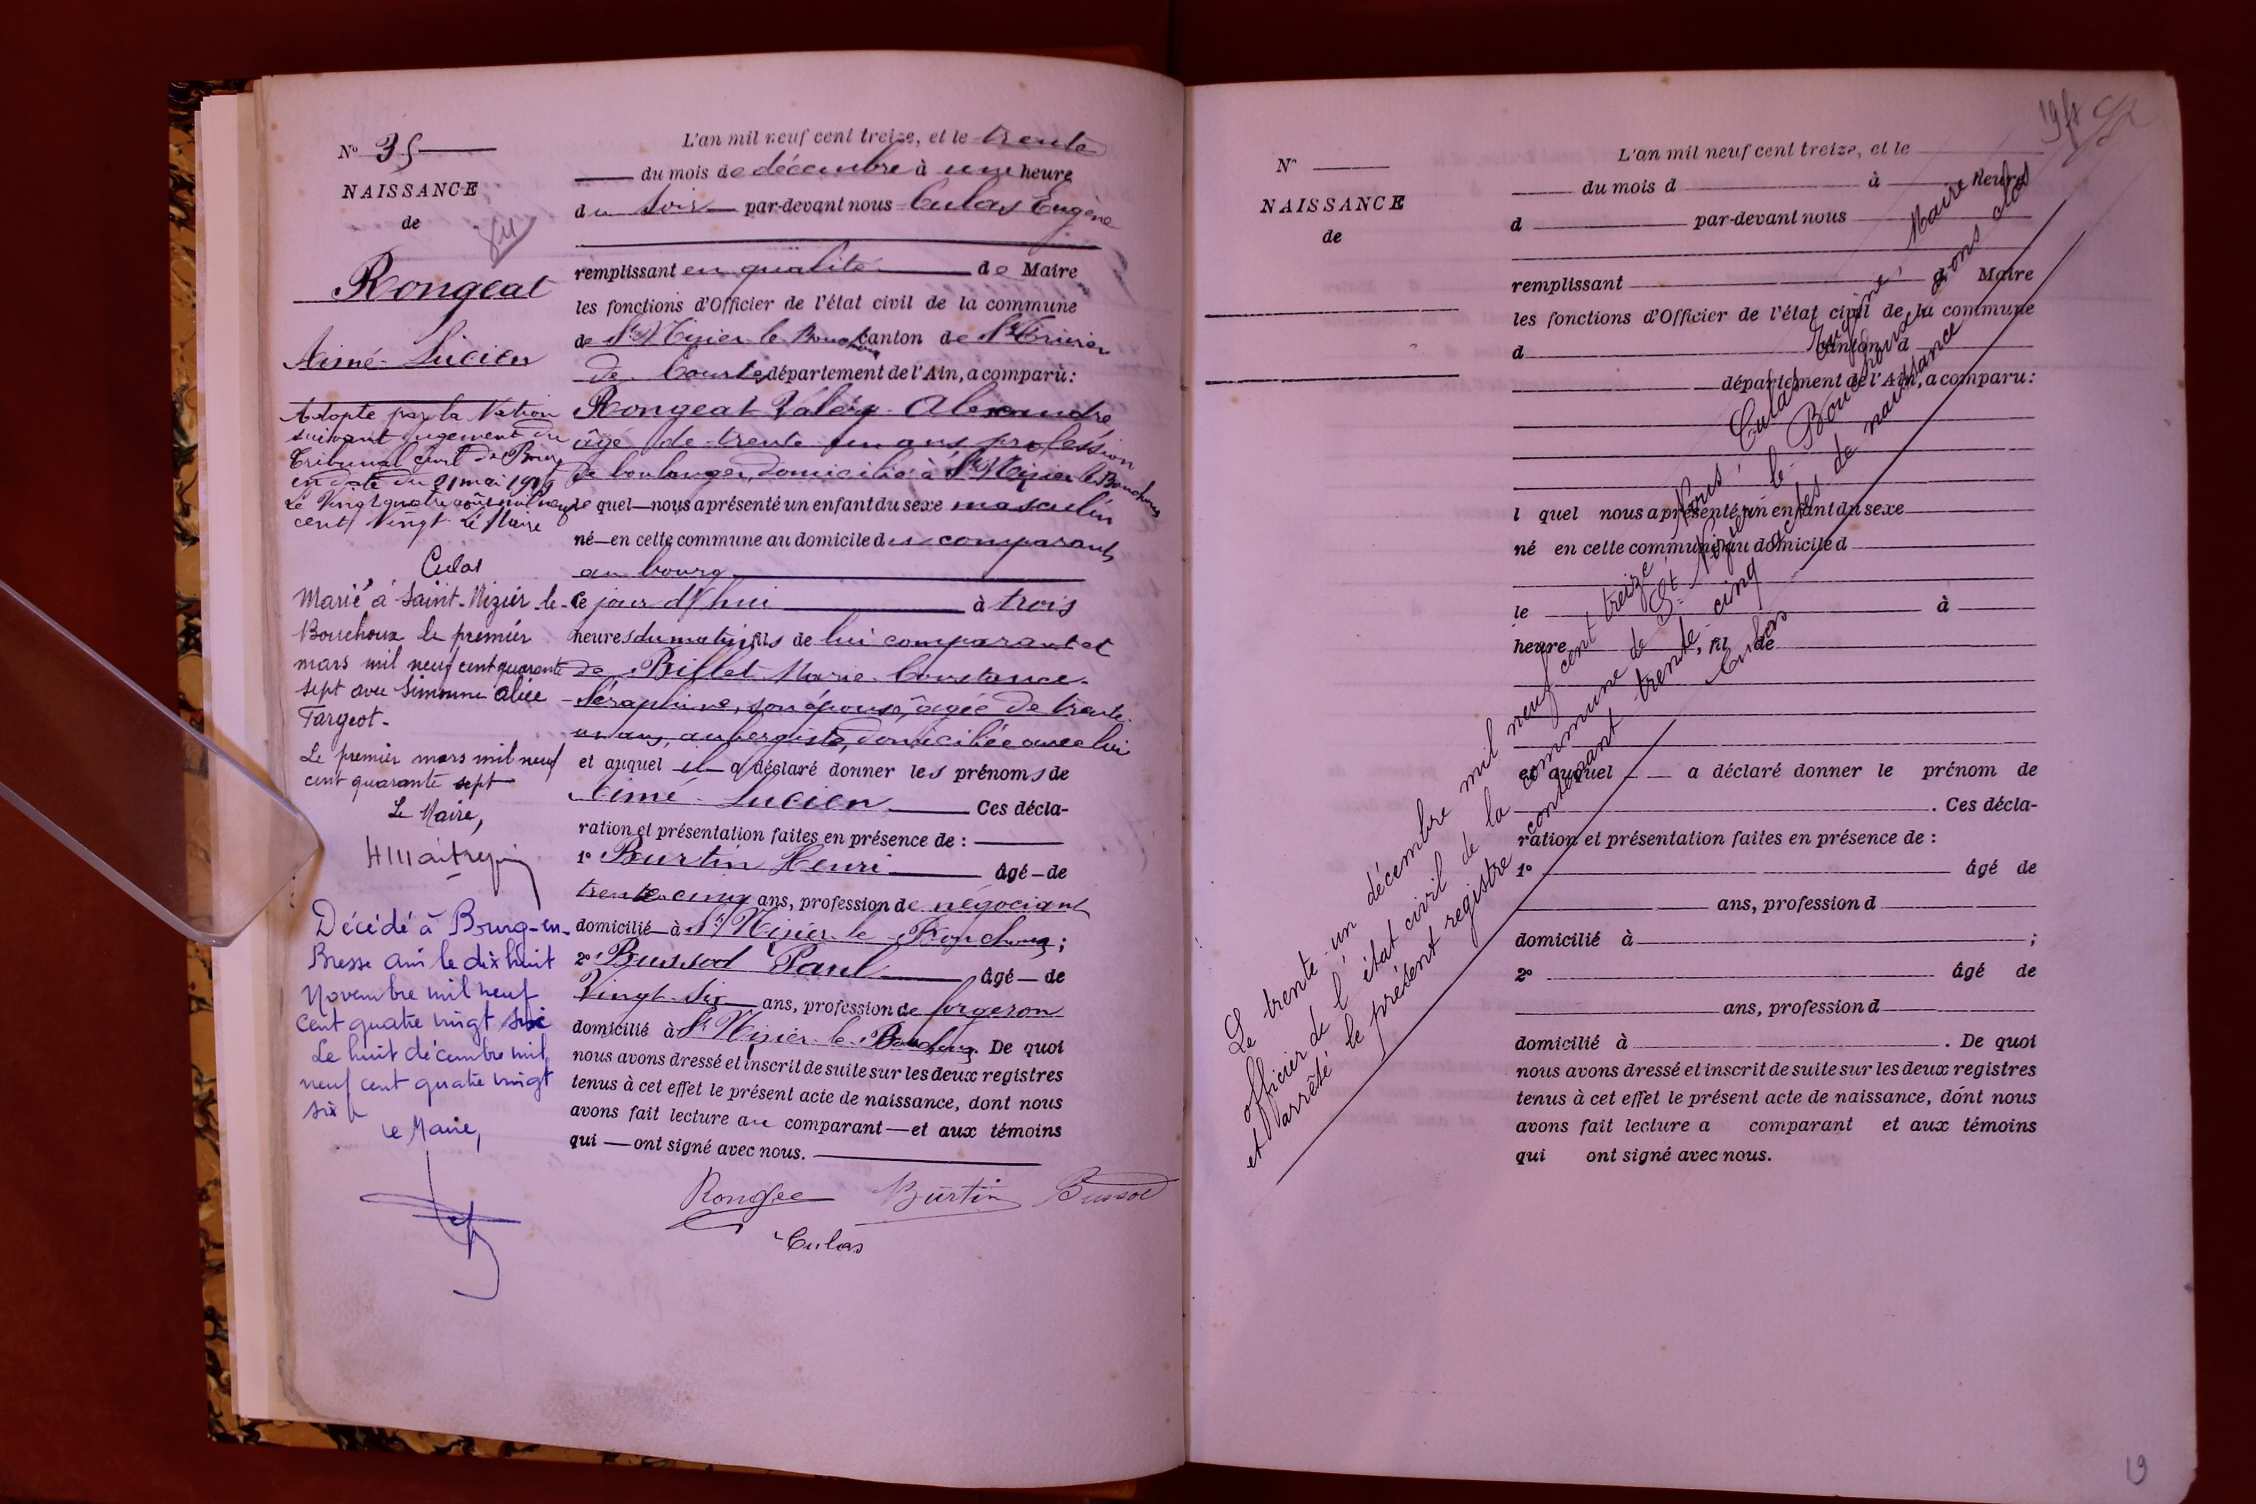 N° 35
NAISSANCE
de
Rongeat
Aimé Lucien
Adopté par la Nation
suivant jugement du
Tribunal civil de Bourg
en date du 21 mai 1919
Le Vingt quatre août mil neuf
cent vingt Le Maire
Culas
Marié à Saint-Nizier-le-
Bouchoux le premier
mars mil neuf cent quarante
sept avec Simonne Alice
Fargeot-
Le premier mars mil neuf
cent quarante sept
Le Maire,
Décédé à Bourg-en-
Bresse Ain le dix huit
Novembre mil neuf
cent quatre vingt six
Le huit décembre mil
neuf cent quatre vingt
six
Le Maire,
L'an mil neuf cent treize, et le trente
du mois de décembre à une heure
du soir par-devant nous Culas Eugène
remplissant en qualité de Maire
les fonctions d'Officier de l'état civil de la commune
de St Nizier le Bouchoux canton de St Trivier
de Courtes département de l'Ain, a comparu:
Rongeat Valéry Alexandre
âgé de trente un ans profession
de boulanger, domicilié à St Nizier le Bouchoux
le quel nous a présenté un enfant du sexe masculin
né en cette commune au domicile des comparants
au bourg
ce jour d'hui à trois
heures du matin, fils de lui comparant et
de Billet Marie Constance
Séraphine, son épouse, âgée de trente
un ans, aubergiste, domiciliée avec lui
et auquel il a déclaré donner les prénoms de
Aimé Lucien Ces décla-
ration et présentation faites en présence de :
1° Burtin Henri âgé de
trente cinq ans, profession de négociant
domicilié à St Nizier le Bouchoux ;
2° Bussod Paul âgé de
Vingt-six ans, profession de forgeron
domicilié à St Nizier le Bouchoux. De quoi
nous avons dressé et inscrit de suite sur les deux registres
tenus à cet effet le présent acte de naissance, dont nous
avons fait lecture au comparant et aux témoins
qui ont signé avec nous.
Burtin Bussod
Culas
N°
NAISSANCE
de
L'an mil neuf cent treize, et le
du mois d à heure
d par-devant nous
remplissant d Maire
les fonctions d'Officier de l'état civil de la commune
d canton d
département de l'Ain, a comparu:
l quel nous a présenté un enfant du sexe
né en cette commune au domicile d
le à
heure , fil de
et auquel a déclaré donner le prénom de
. Ces décla-
ration et présentation faites en présence de :
1° âgé de
ans, profession d
domicilié à ;
2° âgé de
ans, profession d
domicilié à . De quoi
nous avons dressé et inscrit de suite sur les deux registres
tenus à cet effet le présent acte de naissance, dont nous
avons fait lecture a comparant et aux témoins
qui ont signé avec nous.
Le trente-un décembre mil neuf cent treize, Nous, Culas Eugène, Maire
officier de l'état civil de la commune de St Nizier le Bouchoux avons clos
et arrêté le présent registre contenant trente-cinq actes de naissance
Culas
19